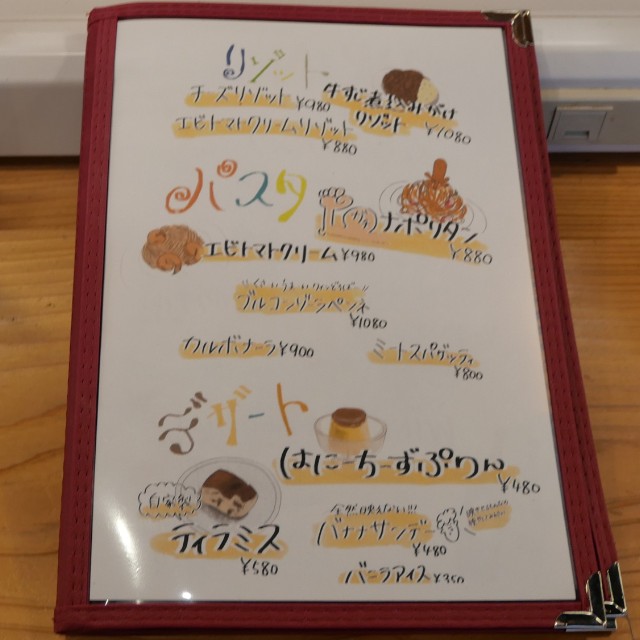 リゾット
チーズリゾット ¥980
牛すじ煮込みがけ
リゾット ¥1080
エビトマトクリームリゾット
¥880
パスタ
ナポリタン
¥880
エビトマトクリーム ¥980
ゴルゴンゾーラペンネ
¥1080
カルボナーラ ¥900
ミートスパゲッティ
¥800
デザート
はにーちーずぷりん
¥480
自家製
ティラミス
¥580
全然映えない!!!
バナナサンデー
¥480
バニラアイス ¥350